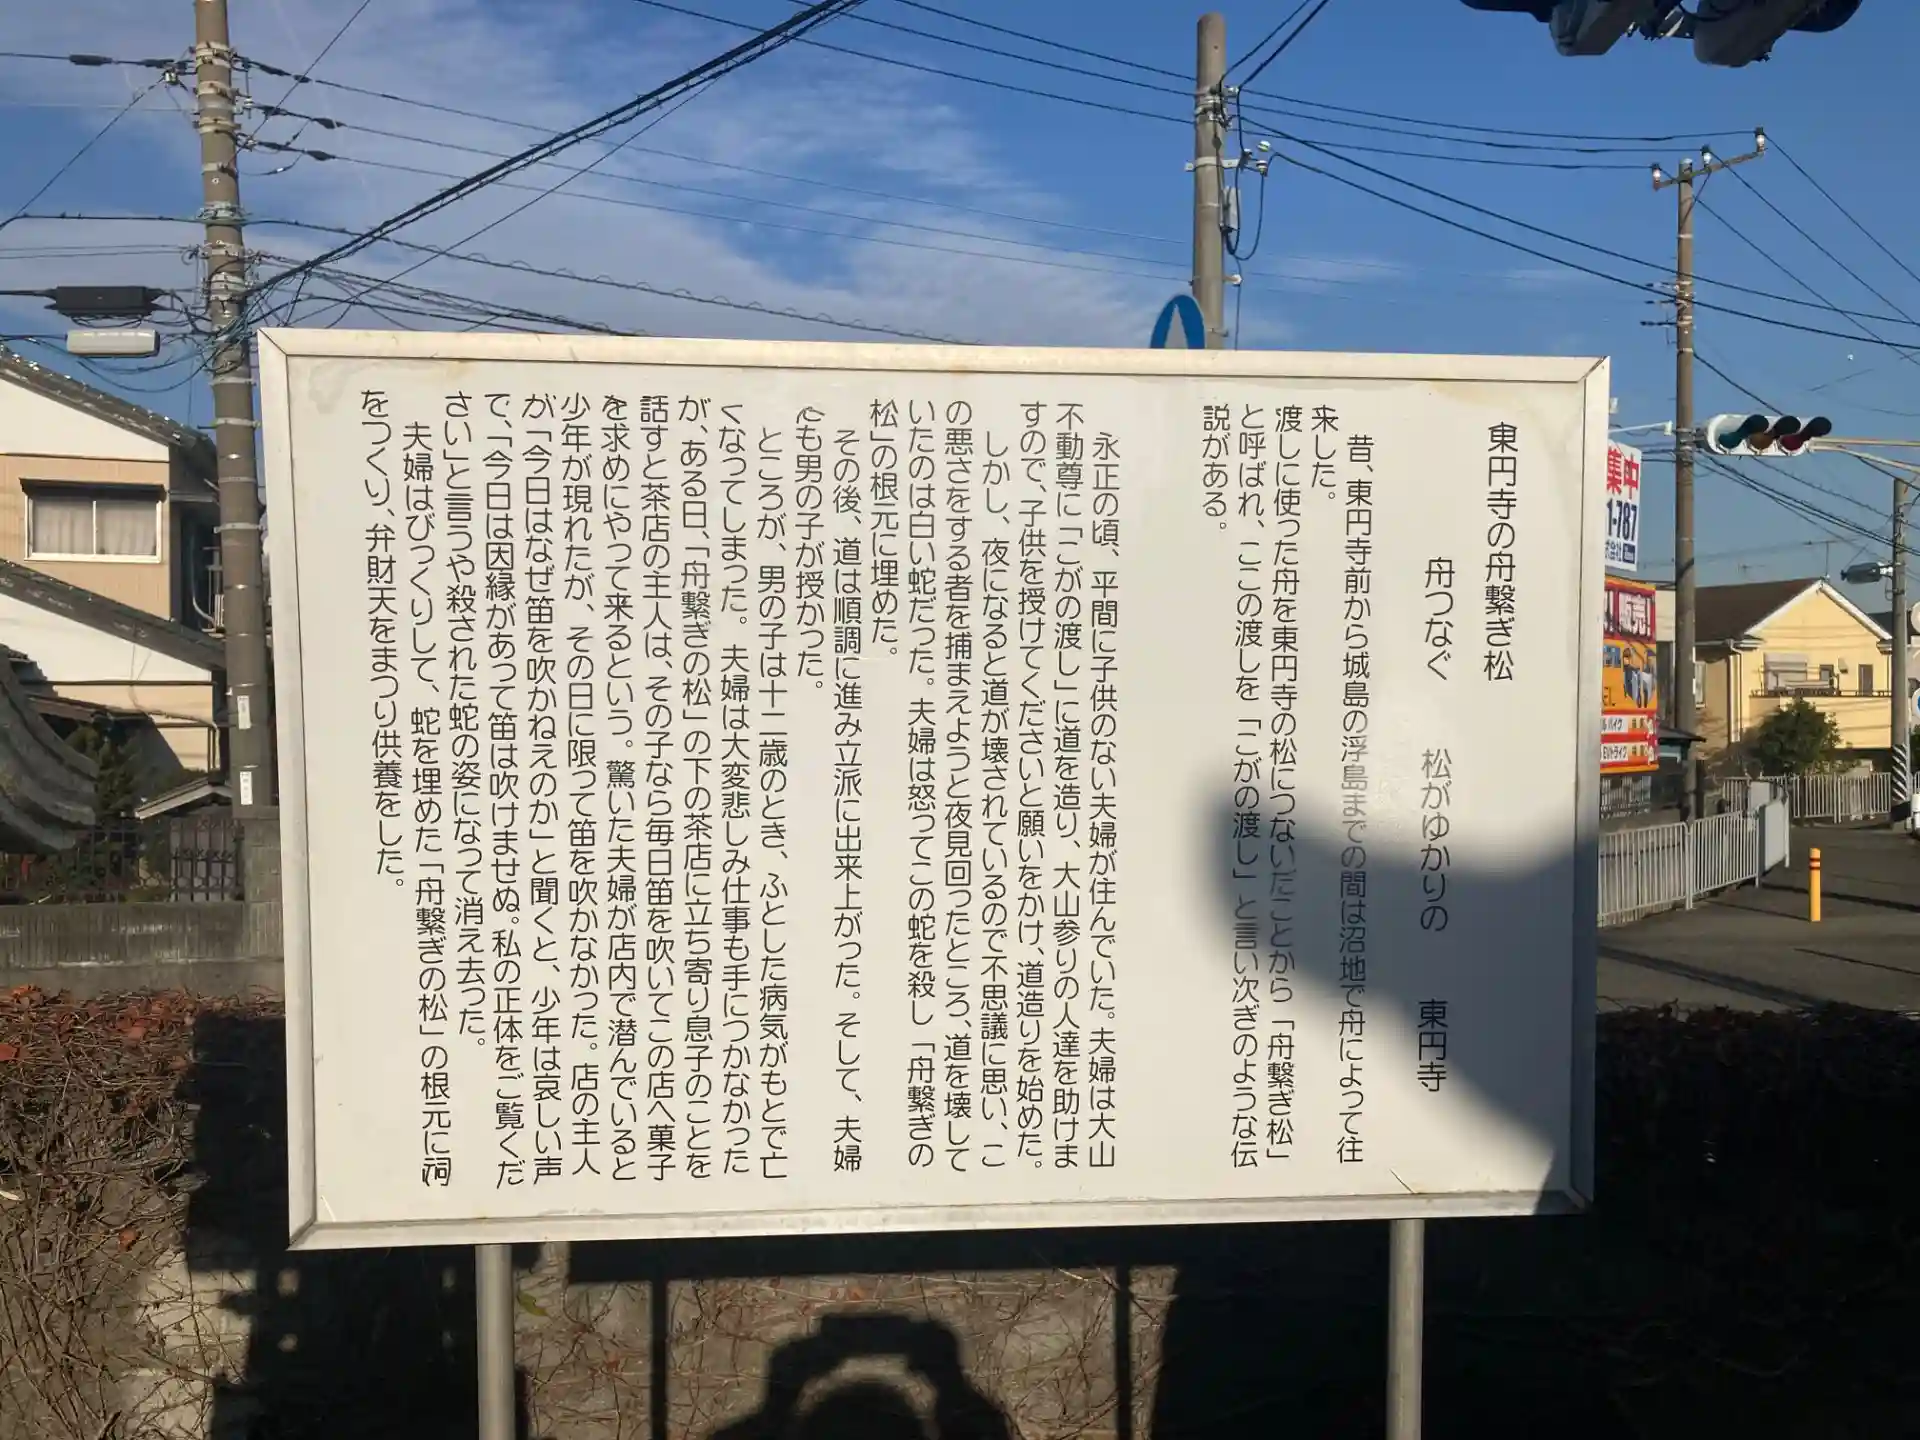 東円寺の舟繋ぎ松
舟つなぐ　松がゆかりの　東円寺
昔、東円寺前から城島の浮島までの間は沼地で舟によって往
来した。
渡しに使った舟を東円寺の松につないだことから「舟繋ぎ松」
と呼ばれ、ここの渡しを「こがの渡し」と言い次ぎのような伝
説がある。
永正の頃、平間に子供のない夫婦が住んでいた。夫婦は大山
不動尊に「こがの渡し」に道を造り、大山参りの人達を助けま
すので、子供を授けてくださいと願いをかけ、道造りを始めた。
しかし、夜になると道が壊されているので不思議に思い、こ
の悪さをする者を捕まえようと夜見回ったところ、道を壊して
いたのは白い蛇だった。夫婦は怒ってこの蛇を殺し「舟繋ぎの
松」の根元に埋めた。
その後、道は順調に進み立派に出来上がった。そして、夫婦
にも男の子が授かった。
ところが、男の子は十二歳のとき、ふとした病気がもとで亡
くなってしまった。夫婦は大変悲しみ仕事も手につかなかった
が、ある日、「舟繋ぎの松」の下の茶店に立ち寄り息子のことを
話すと茶店の主人は、その子なら毎日笛を吹いてこの店へ菓子
を求めにやって来るという。驚いた夫婦が店内で潜んでいると
少年が現れたが、その日に限って笛を吹かなかった。店の主人
が「今日はなぜ笛を吹かねえのか」と聞くと、少年は哀しい声
で、「今日は因縁があって笛は吹けませぬ。私の正体をご覧くだ
さい」と言うや殺された蛇の姿になって消え去った。
夫婦はびっくりして、蛇を埋めた「舟繋ぎの松」の根元に祠
をつくり、弁財天をまつり供養をした。
集中
1-787
販売!